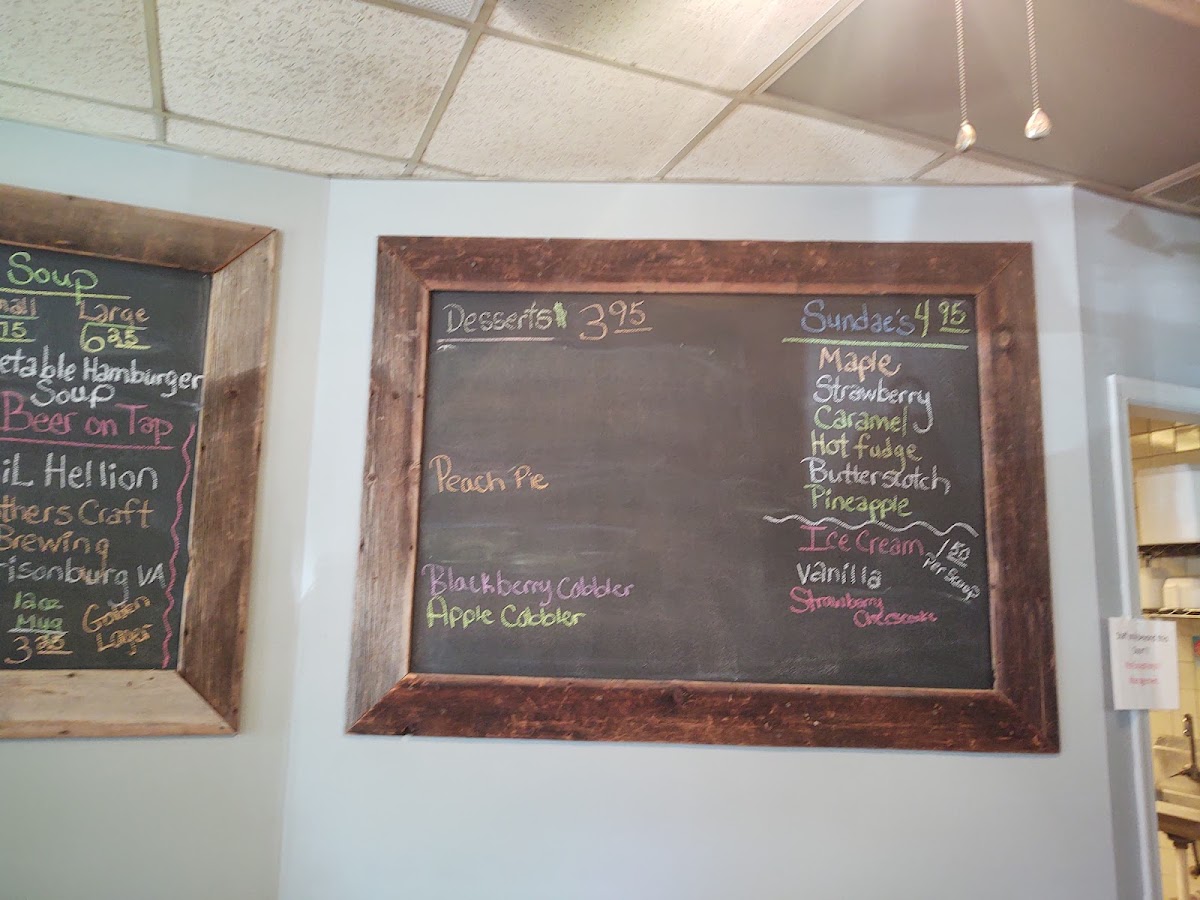 Soup
Large
6.25
Hamburger
Soup
Beer on Tap
Hellion
Craft
Brewing
VA
12oz
Mug
3
Golden
Lager
Desserts 3.95
Peach Pie
Blackberry Cobbler
Apple Cobbler
Sundae's 4.95
Maple
Strawberry
Caramel
Hot fudge
Butterscotch
Pineapple
Ice Cream 1.50
per scoop
Vanilla
Strawberry
Cheesecake